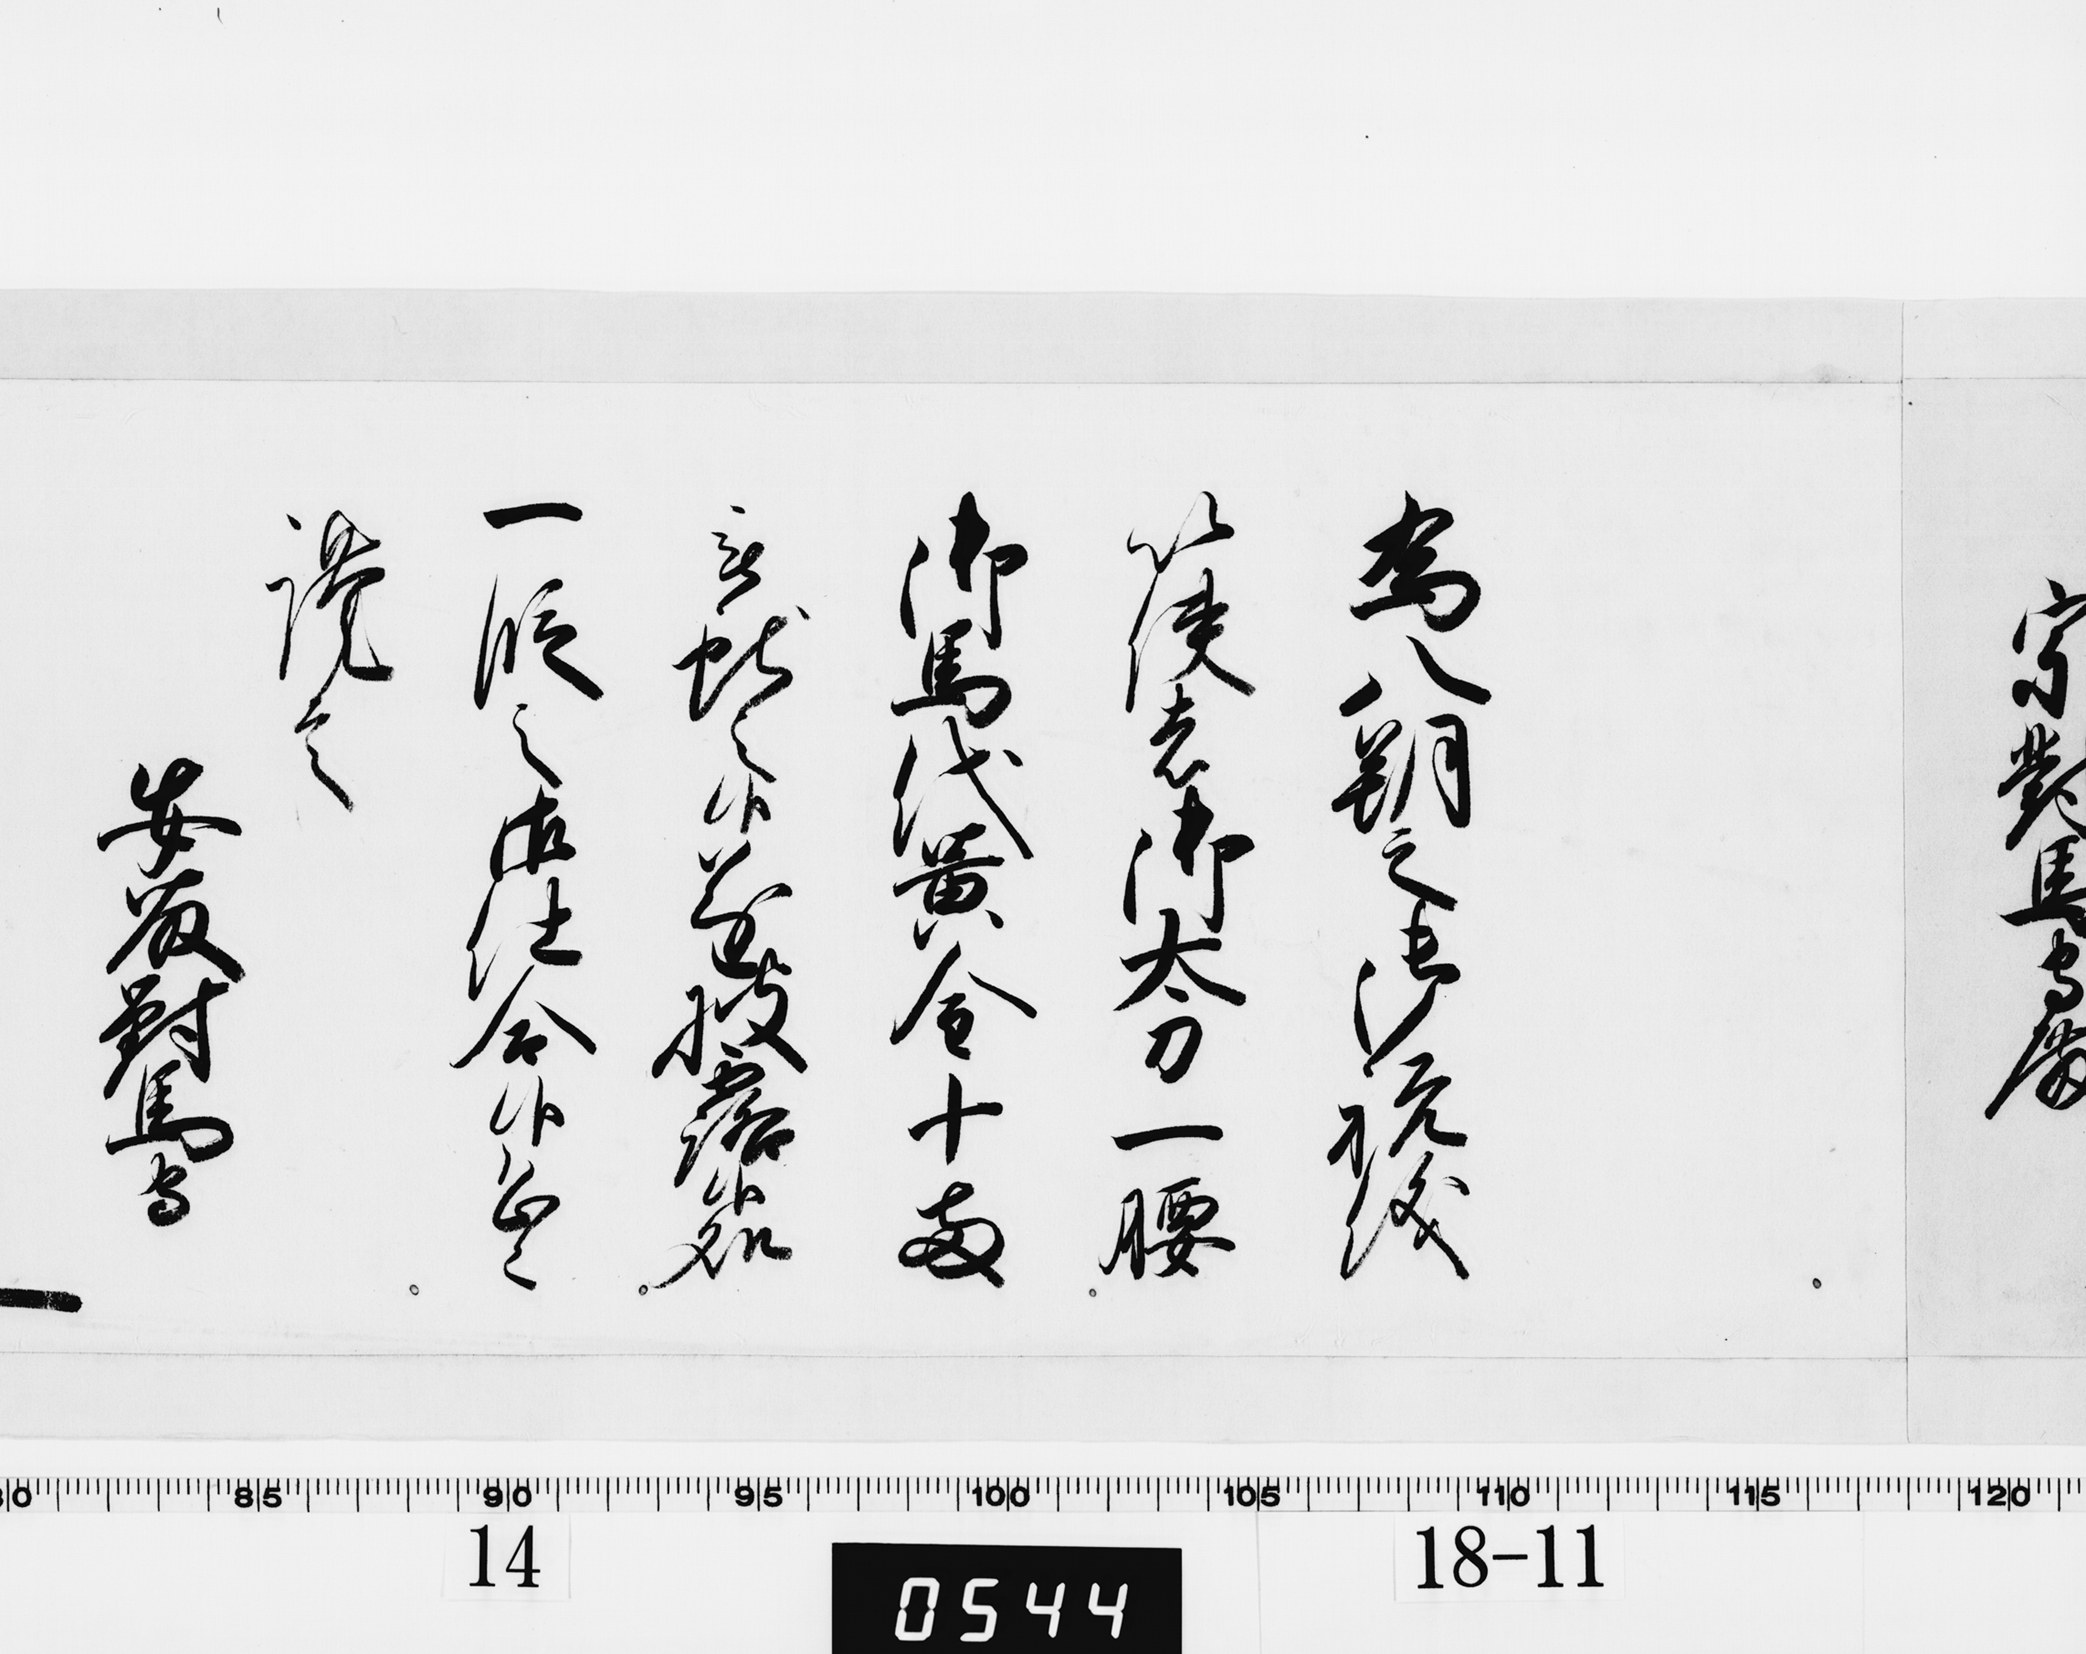 宗對馬守殿
為八朔之御祝儀
以使者御太刀一腰
御馬代黄金十両
被献之候遂披露候処
一段之御仕合候恐々
謹言
安藤對馬守
85 90 95 100 105 110 115 120
14
18-11
0544